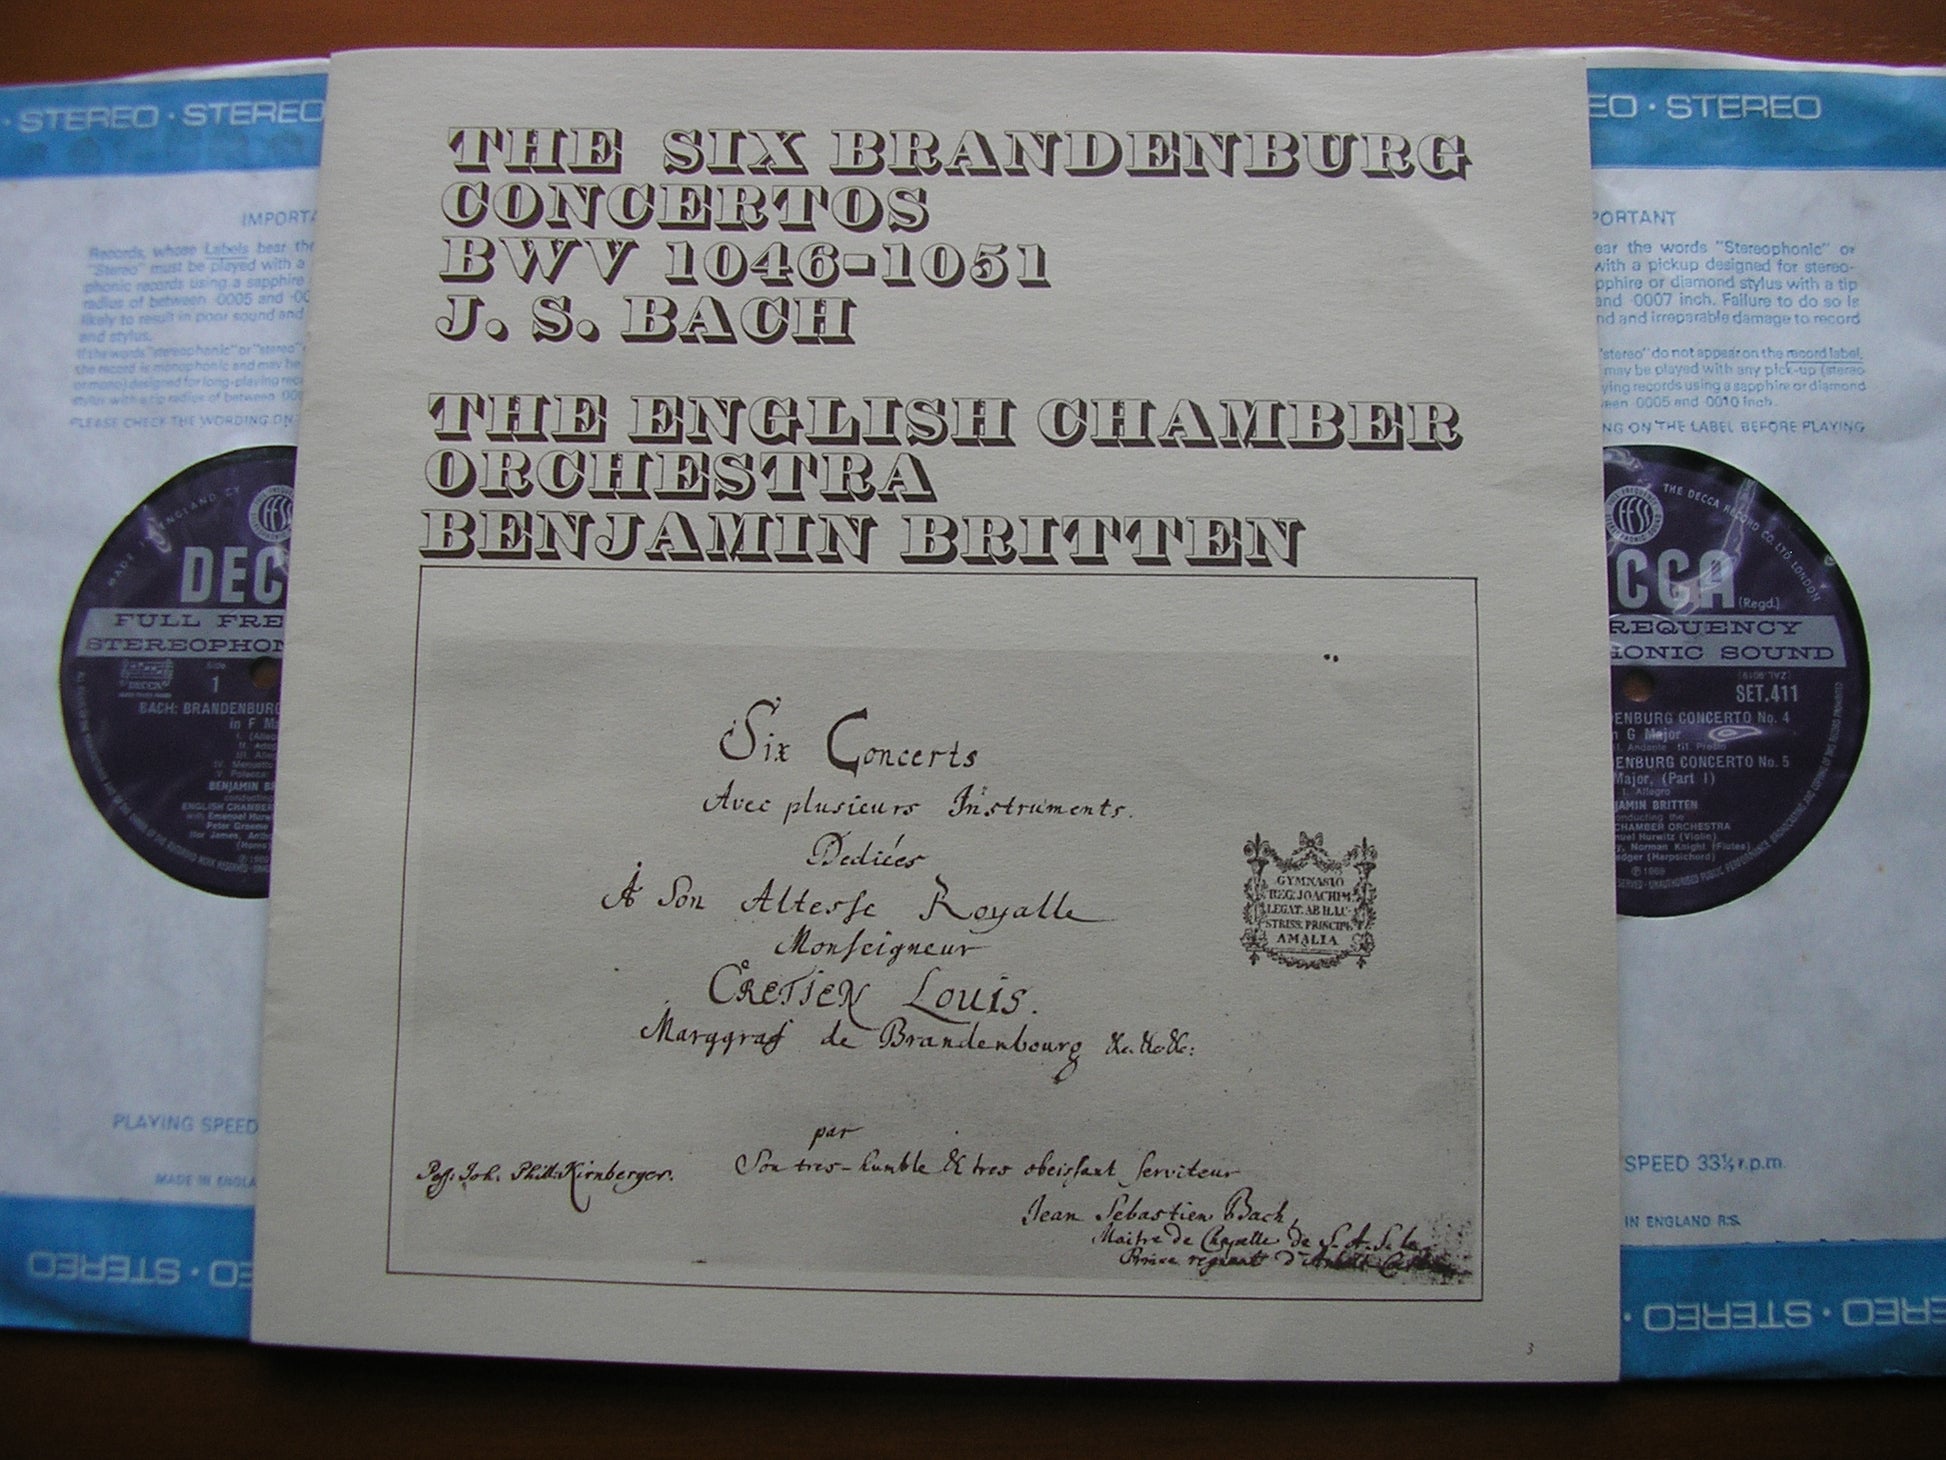 STEREO · STEREO
IMPORTA
Records, whose Labels bear the
"Stereo" must be played with a
phonic records using a sapphire
radius of between ·0005 and ·00
likely to result in poor sound and
and stylus.
If the words "stereophonic" or "stereo"
the record is monophonic and may be
or mono) designed for long-playing rec
stylus with a tip radius of between ·00
PLEASE CHECK THE WORDING ON
DEC
FULL FRE
STEREOPHON
Side
1
BACH: BRANDENBURG
in F Ma
BENJAMIN BR
ENGLISH CHAMBER
with Emanuel Hurw
Peter Graeme
PLAYING SPEED
MADE IN ENGLA
STEREO · STEREO
THE SIX BRANDENBURG
CONCERTOS
BWV 1046-1051
J. S. BACH
THE ENGLISH CHAMBER
ORCHESTRA
BENJAMIN BRITTEN
Six Concerts
Avec plusieurs Instruments.
Dediées
A Son Altesse Royalle
Monseigneur
CRETIEN LOUIS.
Marggraf de Brandenbourg &c. &c. &c:
par
Son tres-humble & tres obeissant serviteur
Jean Sebastien Bach,
Maitre de Chapelle de S. A. S. le
Prince regnant d'Anhalt
Poss. Joh. Phill: Kirnberger.
GYMNASIO
REG. JOACHIM.
LEGAT. AB ILLU-
STRISS. PRINCIPE
AMALIA
3
EO · STEREO
PORTANT
ear the words "Stereophonic" or
with a pickup designed for stereo-
pphire or diamond stylus with a tip
and ·0007 inch. Failure to do so is
nd and irreparable damage to record
"stereo" do not appear on the record label,
may be played with any pick-up (stereo
ying records using a sapphire or diamond
een ·0005 and ·0010 inch.
NG ON THE LABEL BEFORE PLAYING
THE DECCA RECORD CO. LTD. LONDON
FFSS
CCA
(Regd.)
REQUENCY
HONIC SOUND
SET.411
DENBURG CONCERTO No. 4
n G Major
I. Andante III. Presto
DENBURG CONCERTO No. 5
Major, (Part 1)
I. Allegro
JAMIN BRITTEN
conducting the
CHAMBER ORCHESTRA
uel Hurwitz (Violin)
y, Norman Knight (Flutes)
edger (Harpsichord)
℗ 1969
SPEED 33⅓ r.p.m.
IN ENGLAND R.S.
STEREO · STEREO